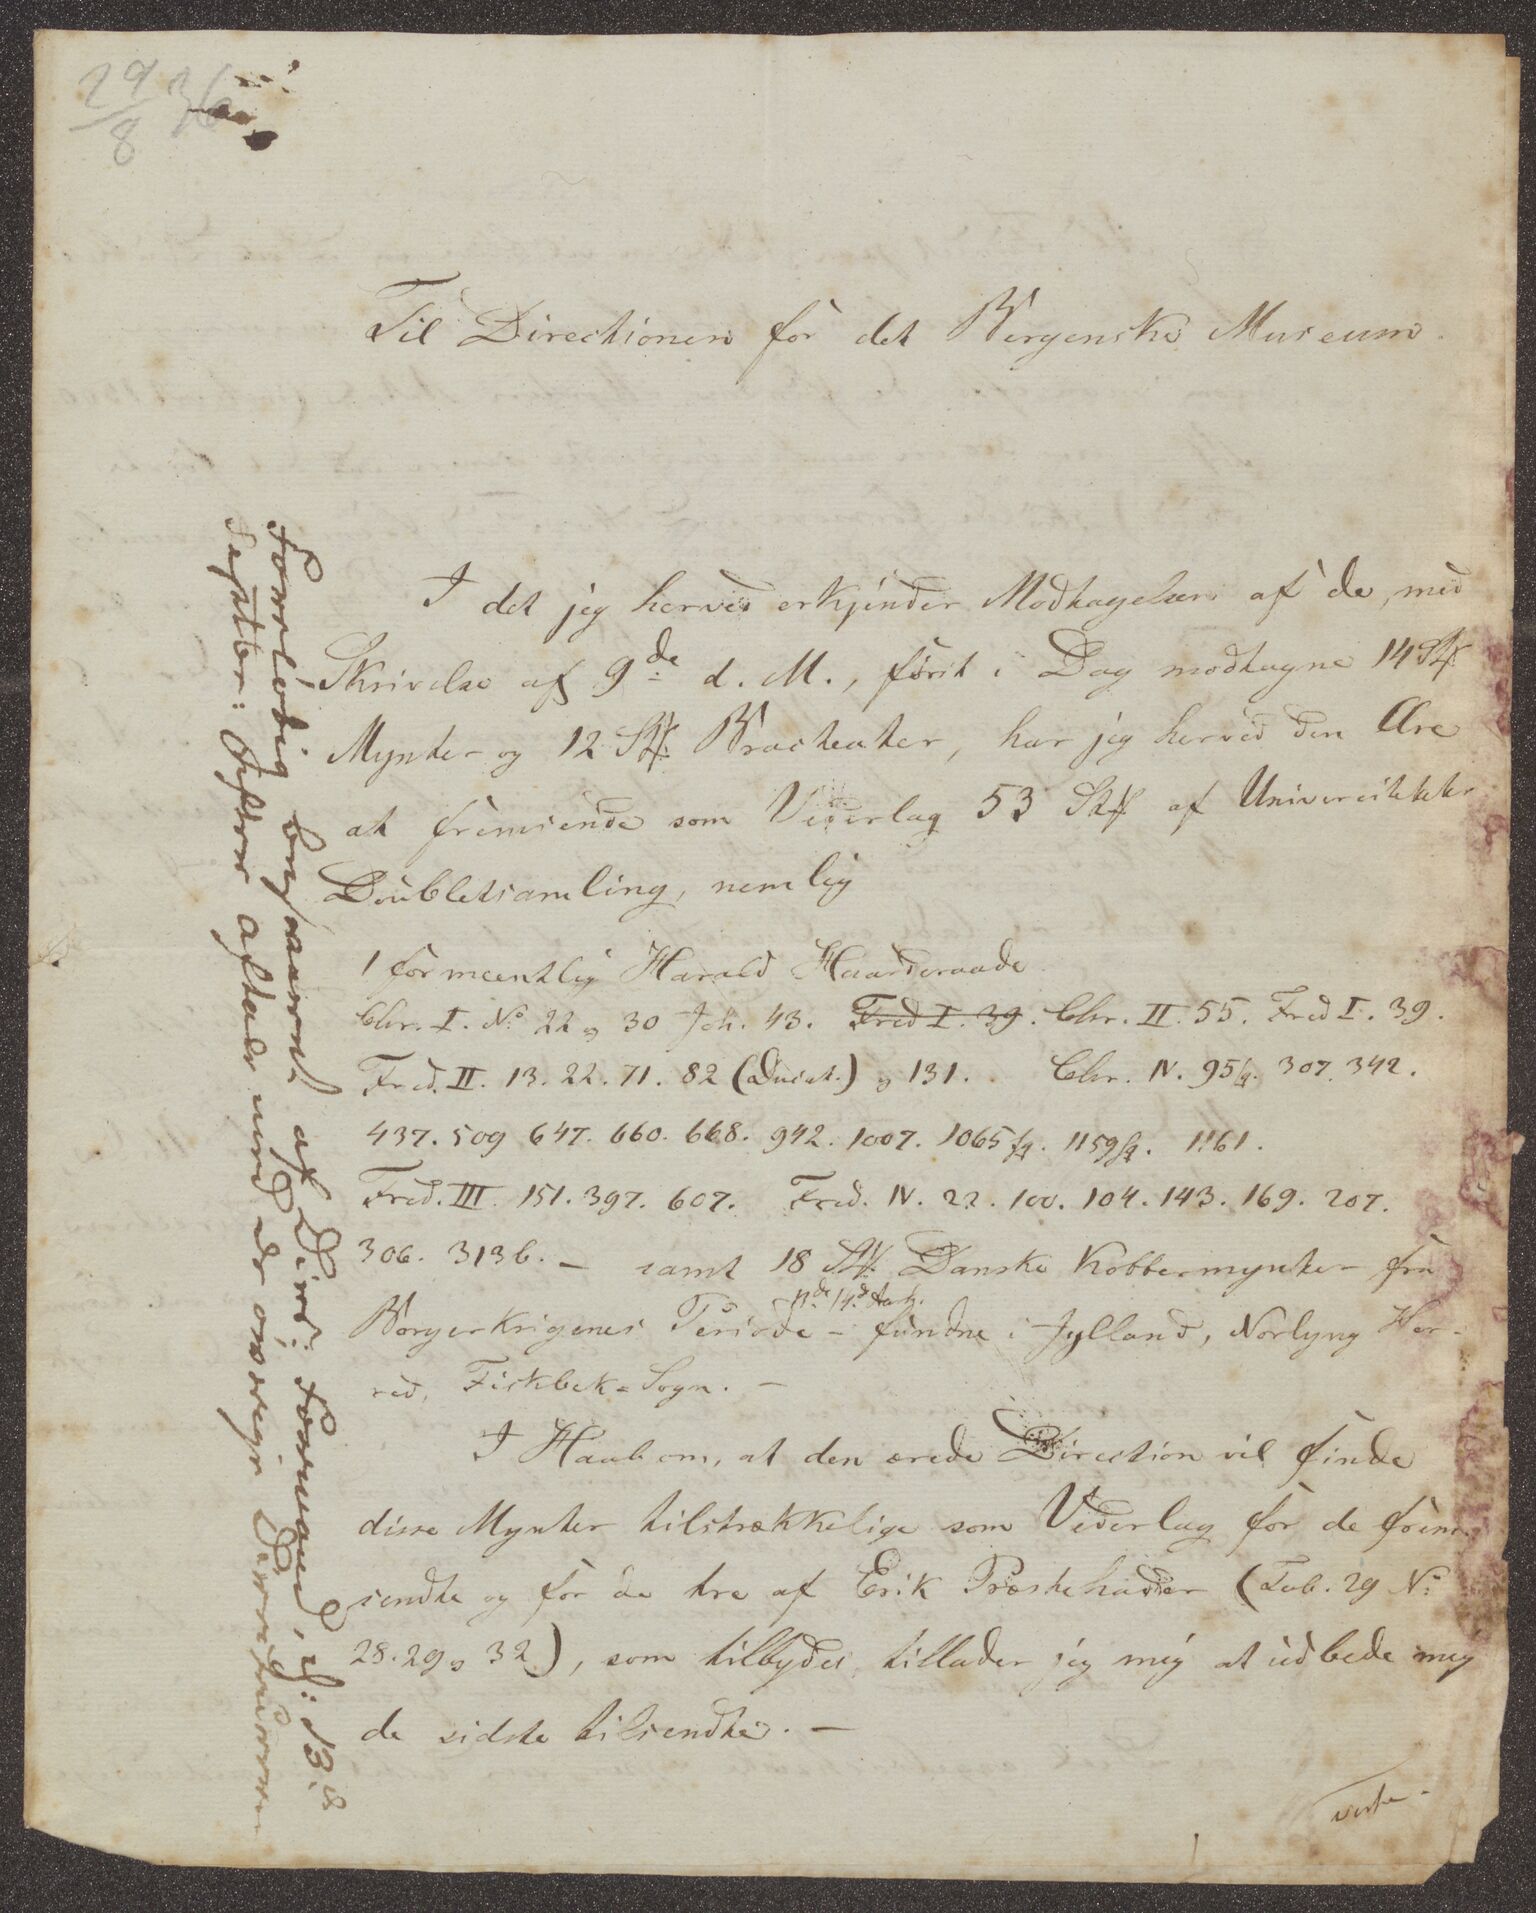 29/8 36
Til Directionen for det Bergenske Museum.
I det jeg herved erkjender Modtagelsen af de, med
Skrivelse af 9de d. M., først i Dag modtagne 14 Stk.
Mynter og 12 Stk. Bracteater, har jeg herved den Ære
at fremsende som Vederlag 53 Stk af Universitetets
Doubletsamling, nemlig
1 formeentlig Harald Haarderaade
Chr. I. No 22 og 30 Joh. 43. Fred I. 39. Chr. II. 55. Fred I. 39.
Fred. II. 13. 22. 71. 82 (Ducat.) og 131. Chr. IV. 95 fg. 307. 342.
437. 509 647. 660. 668. 942. 1007. 1065 fg. 1159 fg. 1161.
Fred. III. 151. 397. 607. Fred. IV. 22. 100. 104. 143. 169. 207.
306. 313 b. — samt 18 Stk. Danske Kobbermynter fra
Borgerkrigenes Periode – fundne i Jylland, Norlyng Her-
red, Fiskbek = Sogn. —
I Haab om, at den ærede Direction vil finde
disse Mynter tilstrækkelige som Vederlag for de frem-
sendte og for de tre af Erik Præstehader (Tab. 29 No
28. 29 og 32), som tilbydes, tillader jeg mig at udbede mig
de sidste tilsendte. —
verte
Foreløbig besvaret af Dir: Formand, d: 13de
Septbr: efter aftale med de øvrige Directeurer